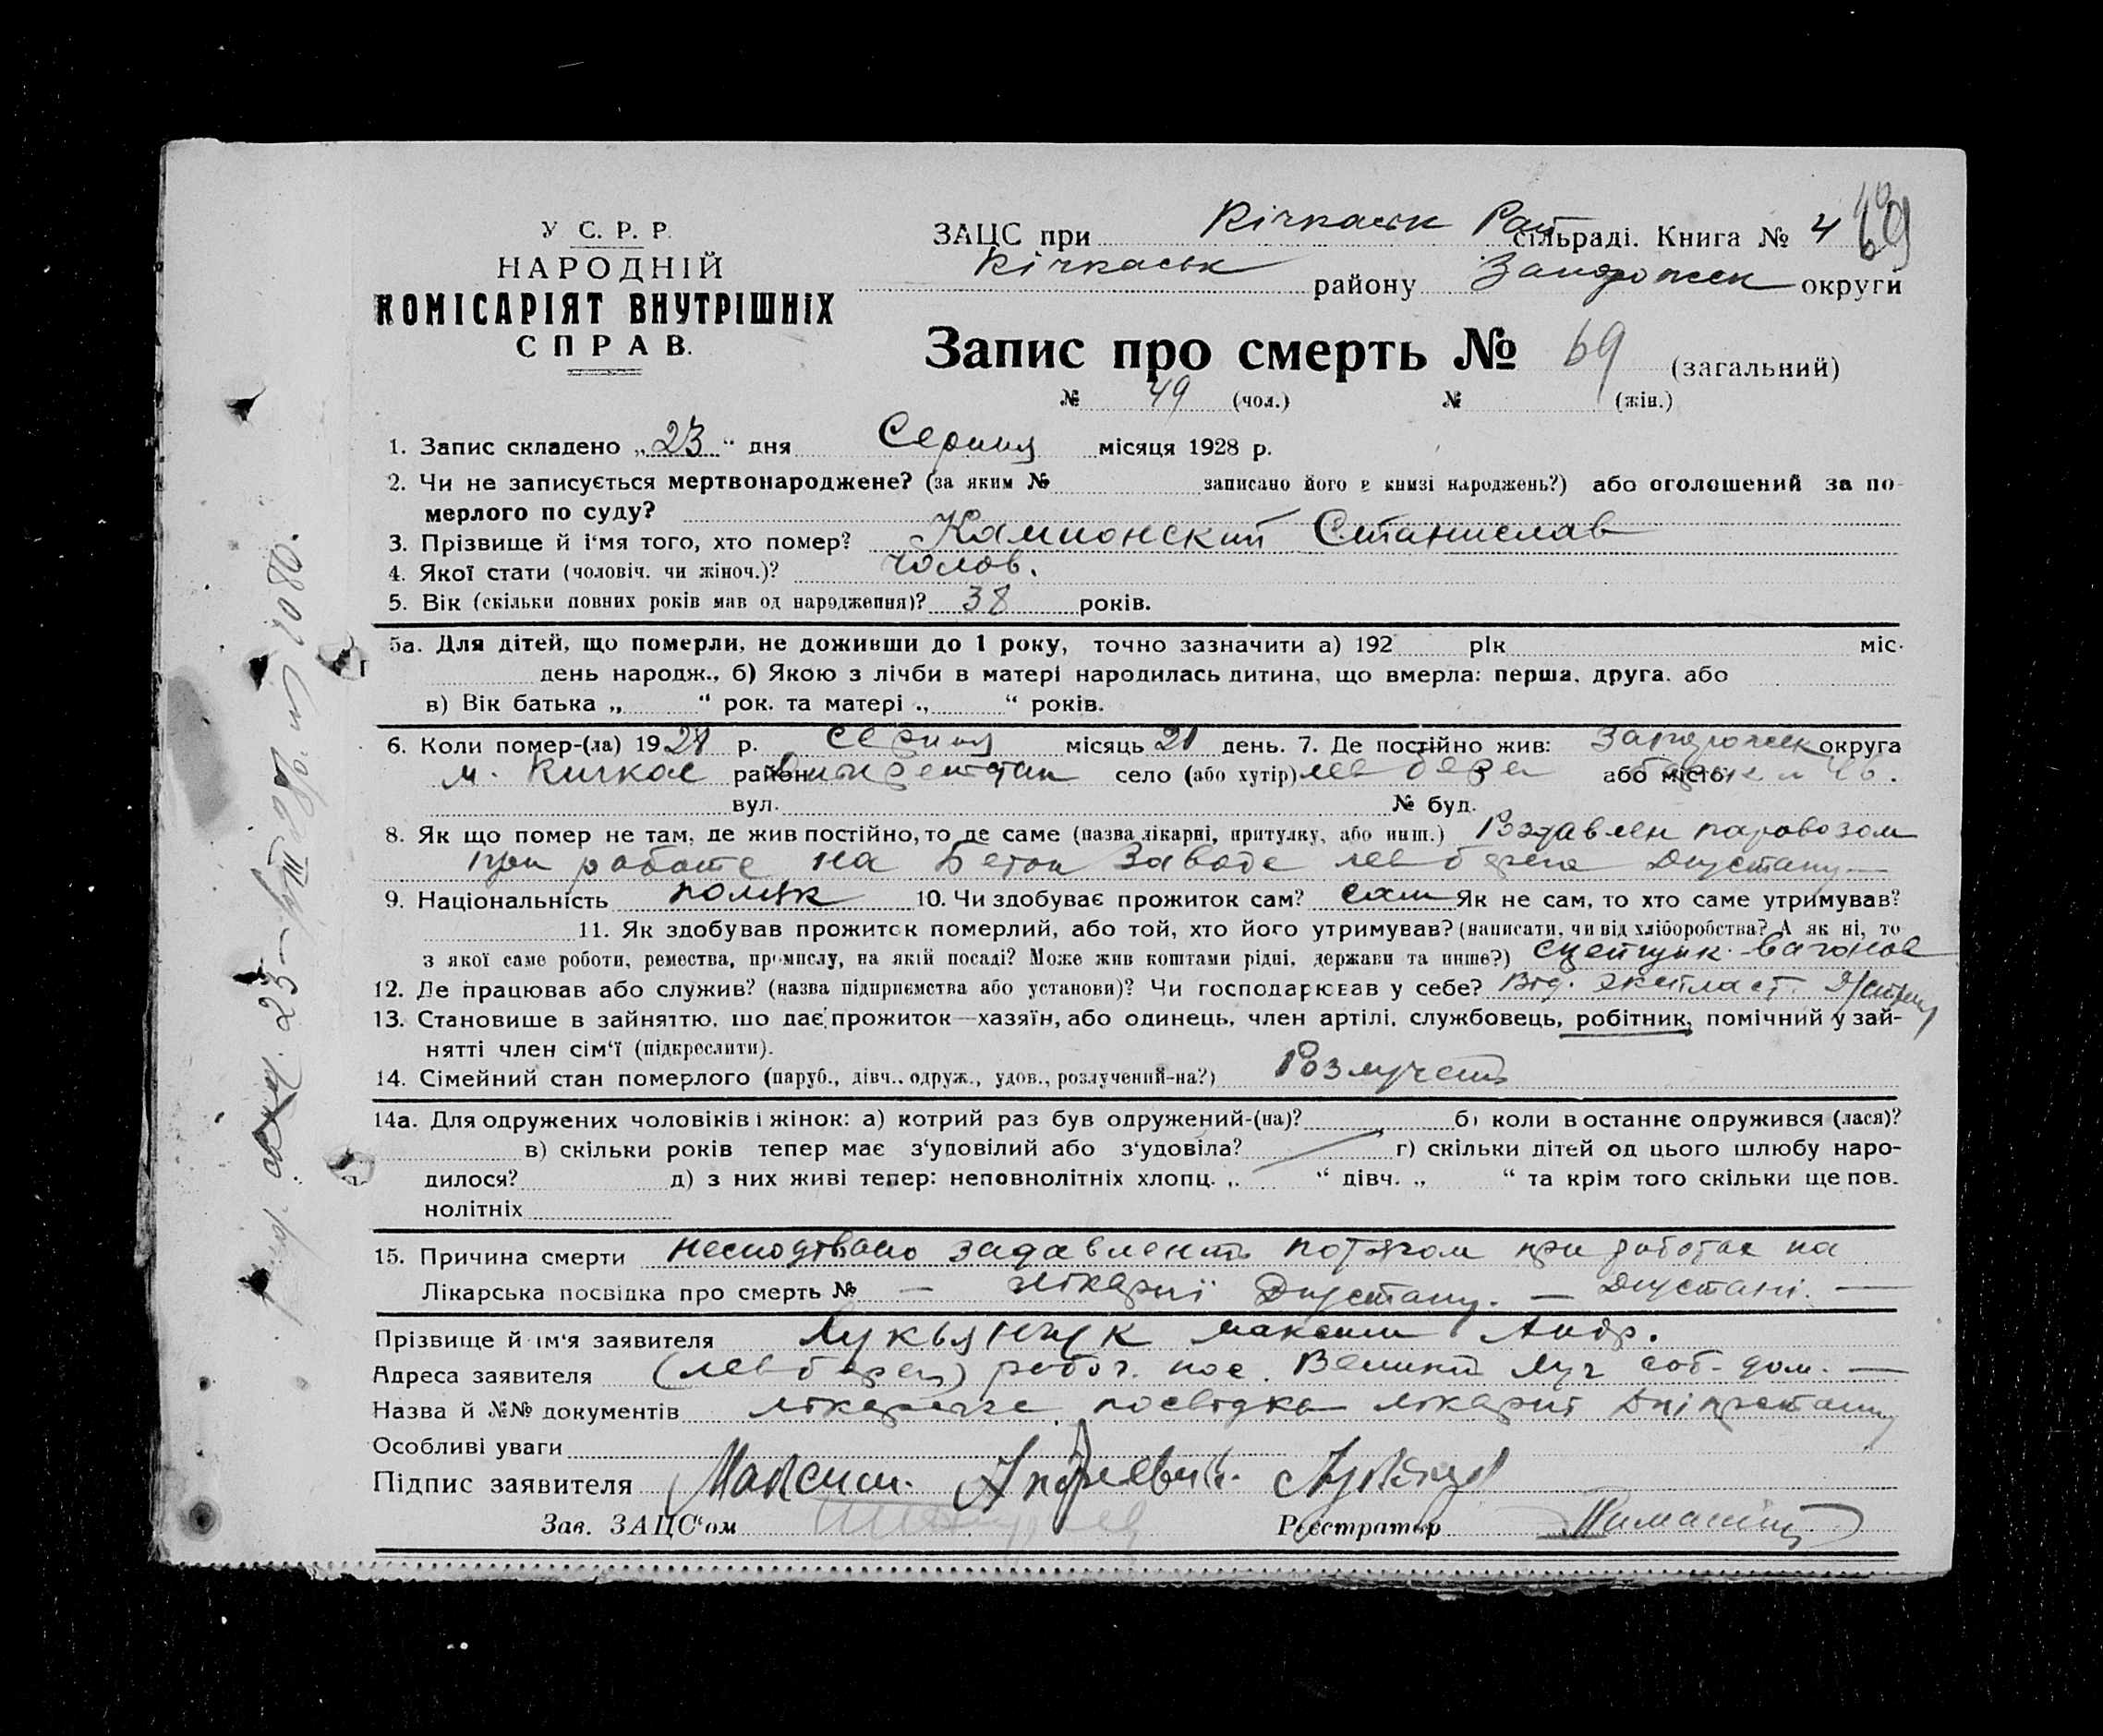 У С. Р. Р.
НАРОДНІЙ
КОМІСАРІЯТ ВНУТРІШНІХ
СПРАВ.
ЗАЦС при Кічкаськ Рай сільраді. Книга № 4 69
Кічкаськ району Запорожськ округи
Запис про смерть № 69 (загальний)
№ 49 (чол.) № (жін.)
1. Запис складено „23“ дня Серпня місяця 1928 р.
2. Чи не записується мертвонароджене? (за яким № записано його в книзі народжень?) або оголошений за по-
мерлого по суду?
3. Прізвище й і'мя того, хто помер? Кампонский Станислав
4. Якої стати (чоловіч. чи жіноч.)? чолов.
5. Вік (скільки повних років мав од народження)? 38 років.
5а. Для дітей, що померли, не доживши до 1 року, точно зазначити а) 192 рік міс.
день народж., б) Якою з лічби в матері народилась дитина, що вмерла: перша, друга, або
в) Вік батька „ “ рок. та матері „ “ років.
6. Коли помер-(ла) 1928 р. серпня місяць 21 день. 7. Де постійно жив: Запорожськ округа
м. Кичкас район село (або хутір) лев берег або місто
вул. № буд.
8. Як що помер не там, де жив постійно, то де саме (назва лікарні, притулку, або инш.) Роздавлен паровозом
при работе на Бетон Заводе лев берега Днустану
9. Національність поляк 10. Чи здобуває прожиток сам? сам Як не сам, то хто саме утримував?
11. Як здобував прожиток померлий, або той, хто його утримував? (написати, чи від хліборобства? А як ні, то
з якої саме роботи, ремества, промислу, на якій посаді? Може жив коштами рідні, держави та инше?) сцепщик вагонов
12. Де працював або служив? (назва підприємства або установи)? Чи господарював у себе? Від.
13. Становище в зайняттю, що дає прожиток—хазяїн, або одинець, член артілі, службовець, робітник, помічний у зай-
нятті член сім'ї (підкреслити).
14. Сімейний стан померлого (паруб., дівч., одруж., удов., розлучений-на?) Розлучений
14а. Для одружених чоловіків і жінок: а) котрий раз був одружений-(на)? б) коли востаннє одружився (лася)?
в) скільки років тепер має з'удовілий або з'удовіла? г) скільки дітей од цього шлюбу наро-
дилося? д) з них живі тепер: неповнолітніх хлопц. „ “ дівч. „ “ та крім того скільки ще пов.
нолітніх
15. Причина смерти несподівано задавлений потягом при роботах на
Лікарська посвідка про смерть № — лікарні Днустану. — Днустані. —
Прізвище й ім'я заявителя Лукьянчук Максим Андр.
Адреса заявителя (лев берег) робоч. пос. Великий Луг соб. дом. —
Назва й №№ документів лікарська посвідка лікарні Дніпрестану
Особливі уваги
Підпис заявителя Максим Андреевич
Зав. ЗАЦС'ом Реєстратор